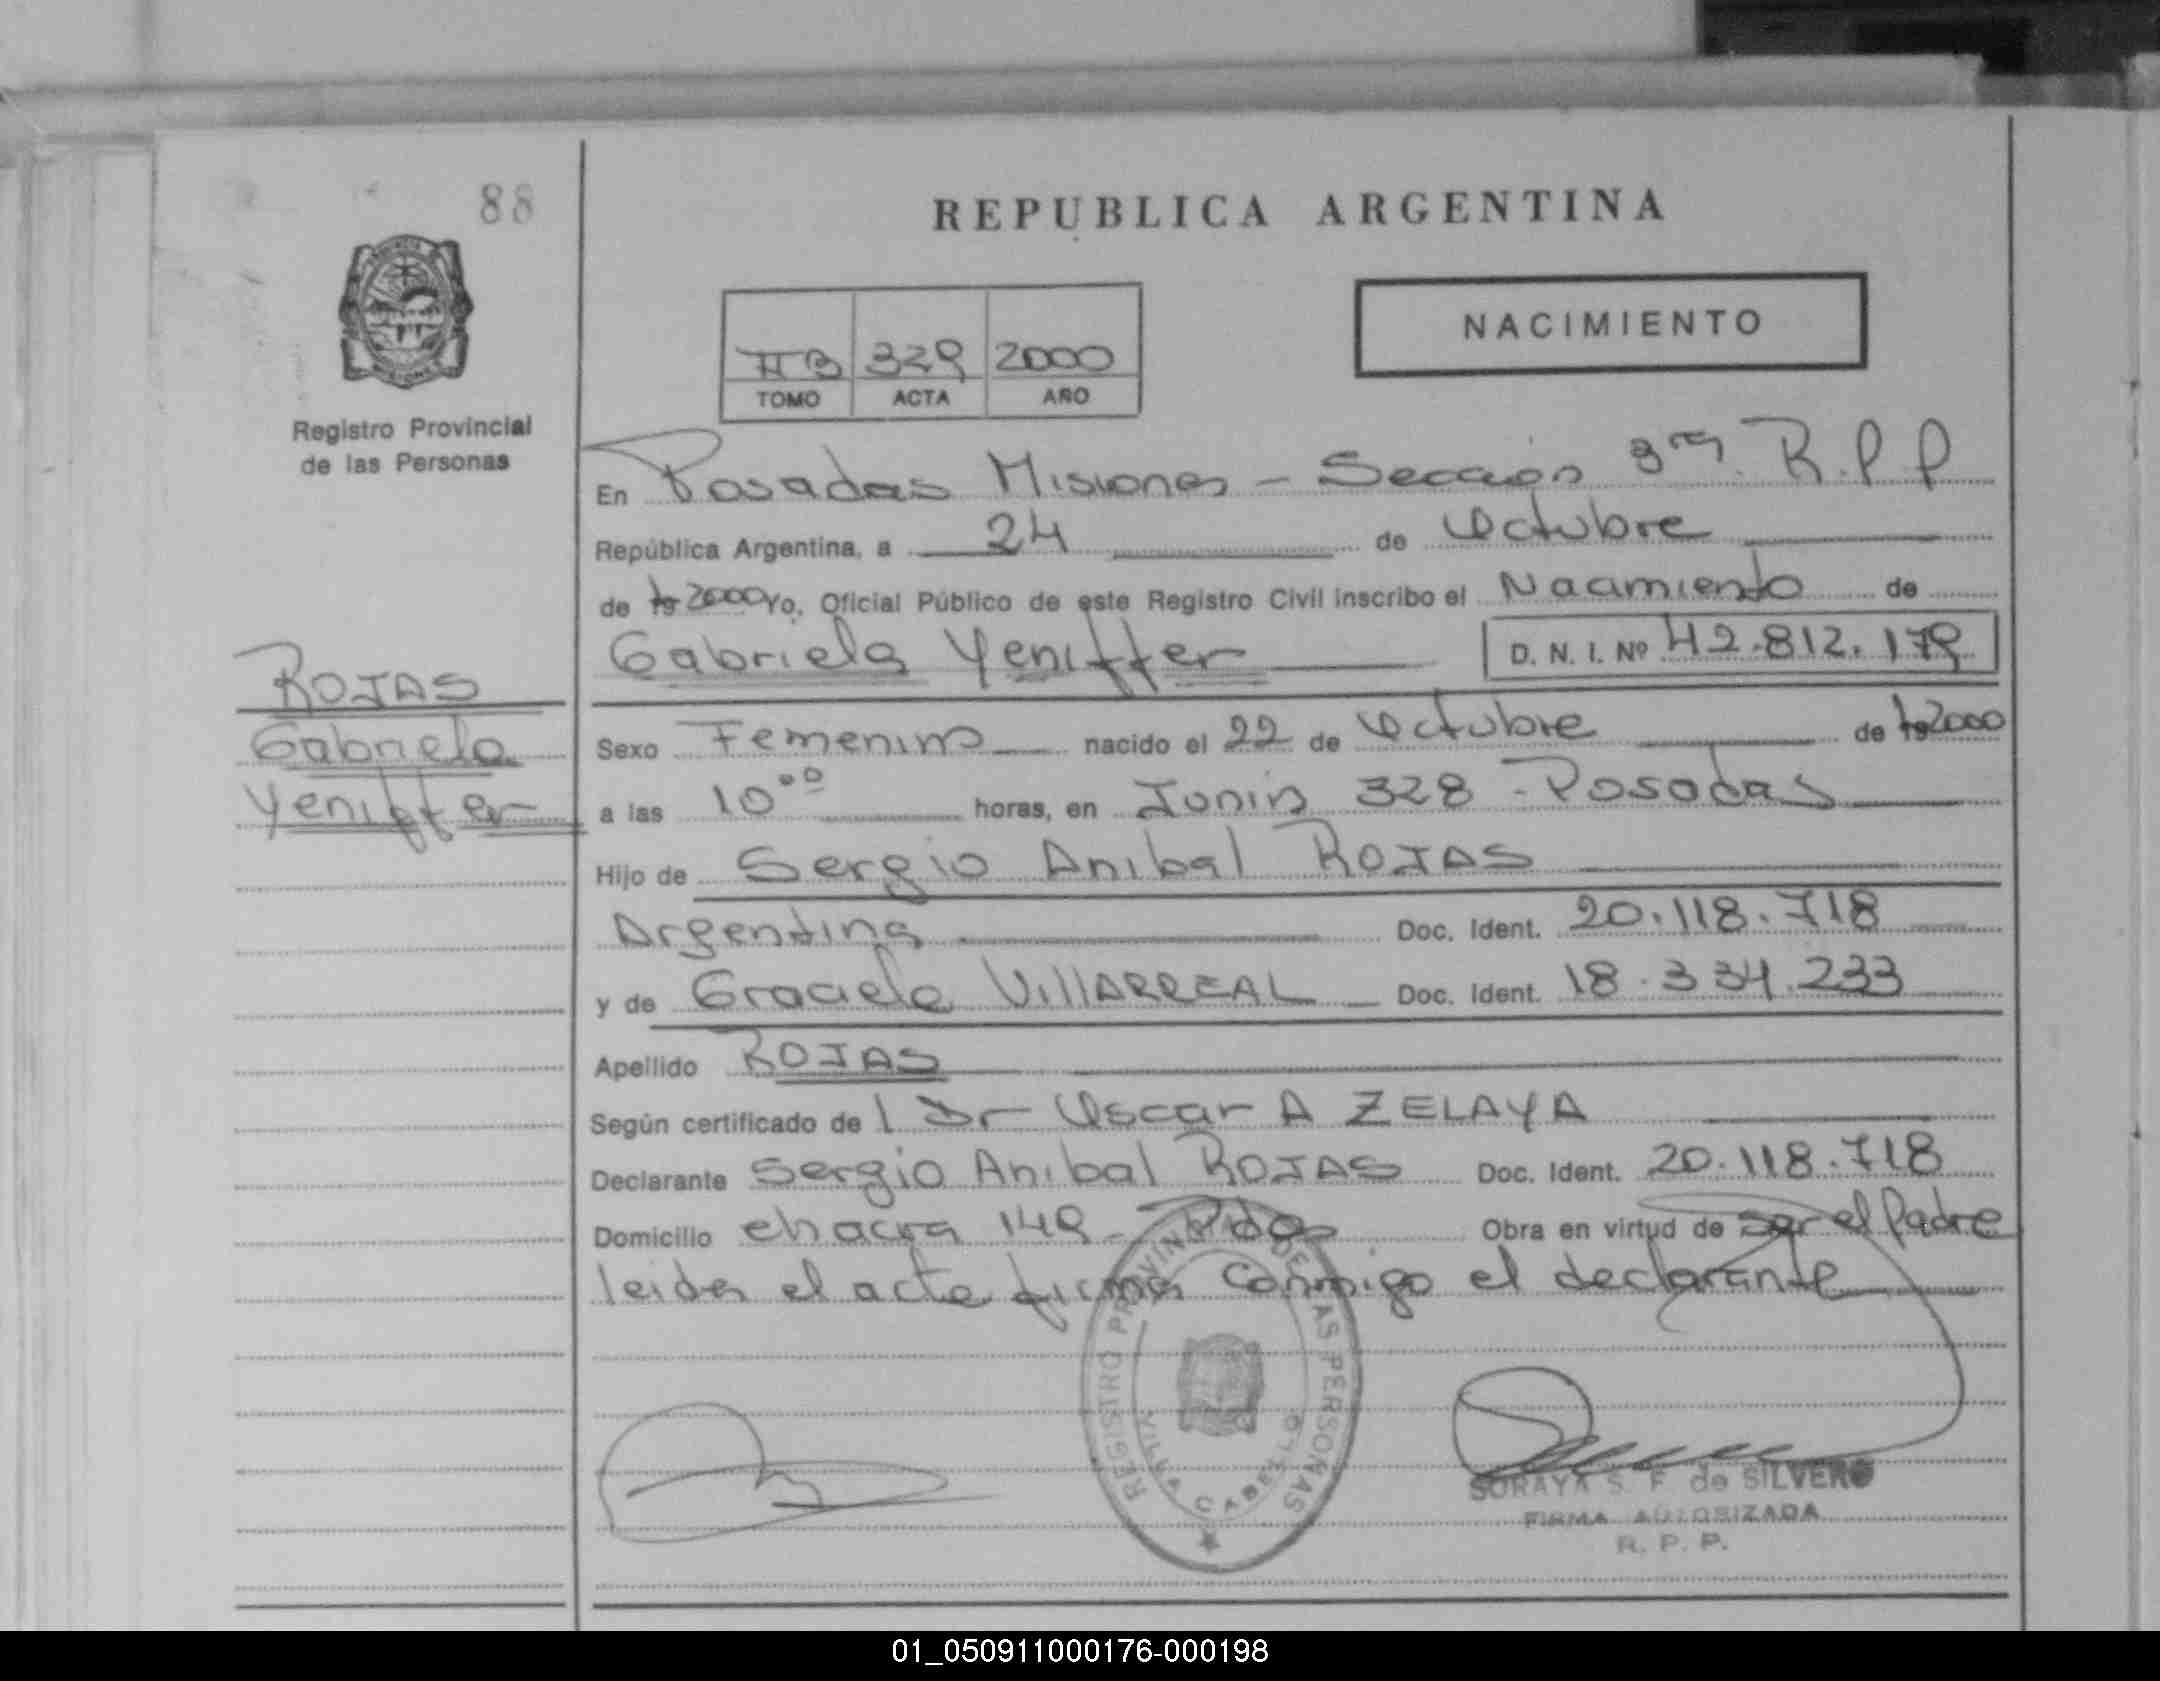 88
REPUBLICA ARGENTINA
NACIMIENTO
II B 329 2000
TOMO ACTA AÑO
Registro Provincial
de las Personas
En Posadas Misiones - Sección 3ra. R.P.P
República Argentina, a 24 de Octubre
de 19 2000 Yo, Oficial Público de este Registro Civil inscribo el Nacimiento de
Gabriela Yeniffer D. N. I. Nº 42.812.179
ROJAS
Gabriela
Yeniffer
Sexo Femenino nacido el 22 de Octubre de 19 2000
a las 10 00 horas, en Junín 328 - Posadas
Hijo de Sergio Anibal ROJAS
Argentina Doc. Ident. 20.118.718
y de Graciela VIllARREAL Doc. Ident. 18.334.233
Apellido ROJAS
Según certificado de l Dr Oscar A ZELAYA
Declarante Sergio Anibal ROJAS Doc. Ident. 20.118.718
Domicilio chacra 149 - Pdas Obra en virtud de ser el Padre
leida el acta firma conmigo el declarante
REGISTRO PROVINCIAL DE LAS PERSONAS
VILLA CABELLO
SORAYA S. F. de SILVERO
FIRMA AUTORIZADA
R. P. P.
01_050911000176-000198